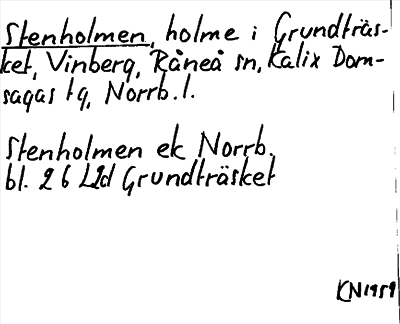 Stenholmen, holme i Grundträs-
ket, Vinberg, Råneå sn, Kalix Dom-
sagas tg, Norrb. l.
Stenholmen ek Norrb.
bl. 26 L2d Grundträsket
KN1959